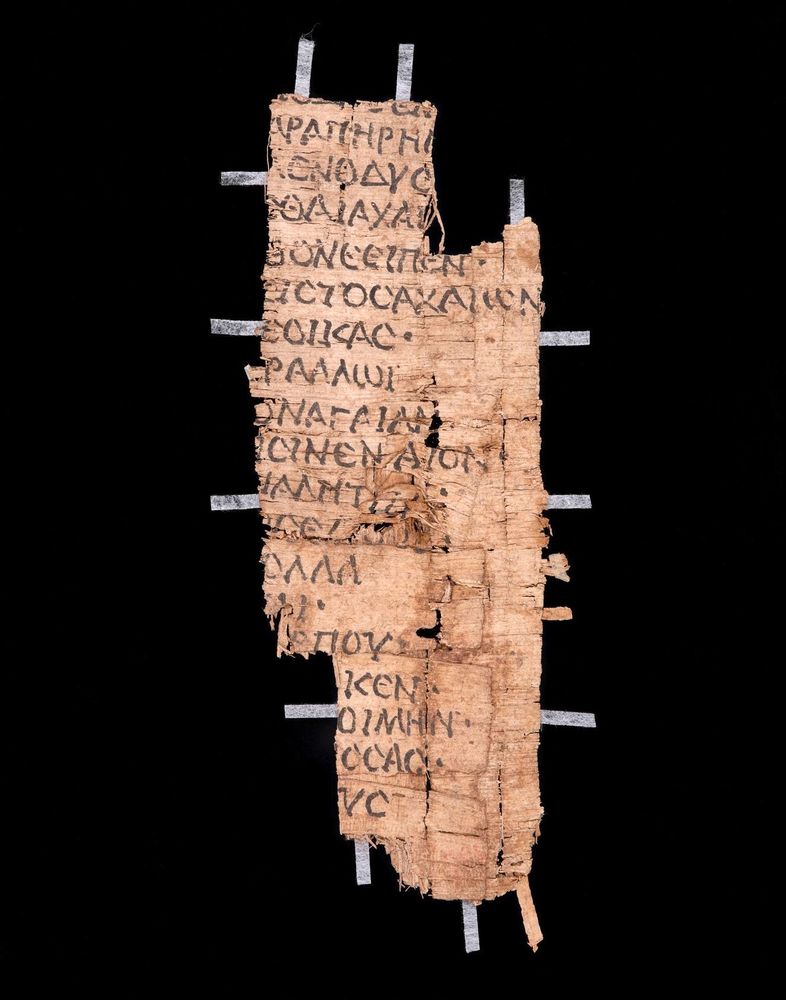 ΑΡΑΠΗΡΗ
ΕΝΟΔΥϹ
ϹΘΑΙΑΧΑΙ
ΟΝΕΕΙΠΕΝ·
ΙϹΤΟϹΑΧΑΙΩΝ
ΕΟΙΚΑϹ·
ΡΑΛΛΩΙ
ΟΝΑΓΑΙΑΝ
ΙϹΙΝΕΝΑΙΟΝ
ΑΛΗΤ
ΟΛΛΑ
ΡΠΟΥ·
ΚΕΝ·
ΟΙΜΗΝ·
ΟϹϹΑϹ·
ΥϹ